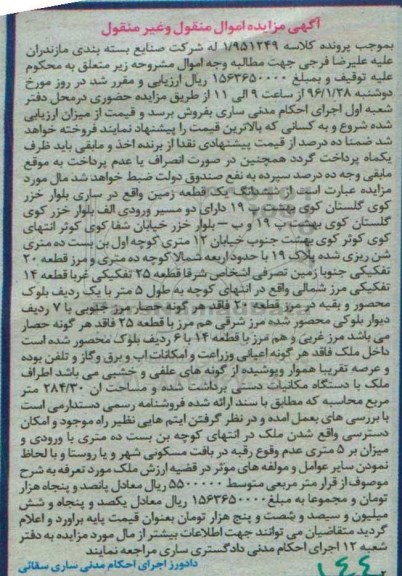 آگهی مزایده اموال منقول وغیر منقول
بموجب پرونده کلاسه ۱/۹۵۱۲۴۹ له شرکت صنایع بسته بندی مازندران
علیه علیرضا فرجی جهت مطالبه وجه اموال مشروحه زیر متعلق به محکوم
علیه توقیف و بمبلغ ۱۵۶۳۶۵۰۰۰۰ ریال ارزیابی و مقرر شد در روز مورخ
دوشنبه ۹۶/۱/۲۸ از ساعت ۹ الی ۱۱ از طریق مزایده حضوری درمحل دفتر
شعبه اول اجرای احکام مدنی ساری بفروش برسد و قیمت از میزان ارزیابی
شده شروع و به کسانی که بالاترین قیمت را پیشنهاد نمایند فروخته خواهد
شد ضمنا ده درصد از قیمت پیشنهادی نقدا از برنده اخذ و مابقی باید ظرف
یکماه پرداخت گردد همچنین در صورت انصراف یا عدم پرداخت به موقع
مابقی وجه ده درصد سپرده به نفع صندوق دولت ضبط خواهد شد مال مورد
مزایده عبارت است از ششدانگ یک قطعه زمین واقع در ساری بلوار خزر
کوی گلستان کوی بهشت پ ۱۹ دارای دو مسیر ورودی الف بلوار خزر کوی
گلستان کوی بهشت پ ۱۹ و ب – بلوار خزر خیابان شفا کوی کوثر انتهای
کوی کوثر کوی بهشت جنوب خیابان ۱۲ متری کوچه اول بن بست ده متری
شن ریزی شده پلاک ۱۹ با حدود اربعه شمالا کوچه ده متری و مرز قطعه ۲۰
تفکیکی جنوبا زمین تصرفی اشخاص شرقا قطعه ۲۵ تفکیکی غربا قطعه ۱۴
تفکیکی مرز شمالی واقع در انتهای کوچه به طول ۵ متر با یک ردیف بلوک
محصور و بقیه در مرز قطعه ۲۰ فاقد هر گونه حصار مرز جنوبی با ۷ ردیف
دیوار بلوکی محصور شده مرز شرقی هم مرز با قطعه ۲۵ فاقد هر گونه حصار
می باشد مرز غربی و هم مرز با قطعه ۱۴ با ۶ ردیف بلوک محصور شده است
داخل ملک فاقد هر گونه اعیانی وزراعت و امکانات اب و برق وگاز و تلفن بوده
و عرصه تقریبا هموار وپوشیده از گونه های علفی و خشبی می باشد اطراف
ملک با دستگاه مکانیات دستی برداشت شده و مساحت ان ۲۸۴/۳۰ متر
مربع محاسبه که مطابق با سند ارائه شده فروشنامه رسمی دستدارمی است
با بررسی های بعمل امده و در نظر گرفتن ایتم هایی نظیر راه موجود و امکان
دسترسی واقع شدن ملک در انتهای کوچه بن بست ده متری با ورودی و
میزان بر ۵ متری عدم وقوع رقبه در بافت مسکونی شهر و یا روستا و با لحاظ
نمودن سایر عوامل و مولفه های موثر در قضیه ارزش ملک مورد تعرفه به شرح
موصوف از قرار متر مربعی متوسط ۵۵۰۰۰۰۰ ریال معادل پانصد و پنجاه هزار
تومان و مجموعا به مبلغ ۱۵۶۳۶۵۰۰۰۰ ریال معادل یکصد و پنجاه و شش
میلیون و سیصد و شصت و پنج هزار تومان بعنوان قیمت پایه براورد و اعلام
گردید متقاضیان می توانند جهت اطلاعات بیشتر از مال مورد مزایده به دفتر
شعبه ۱۲ اجرای احکام مدنی دادگستری ساری مراجعه نمایند
دادورز اجرای احکام مدنی ساری سقائی